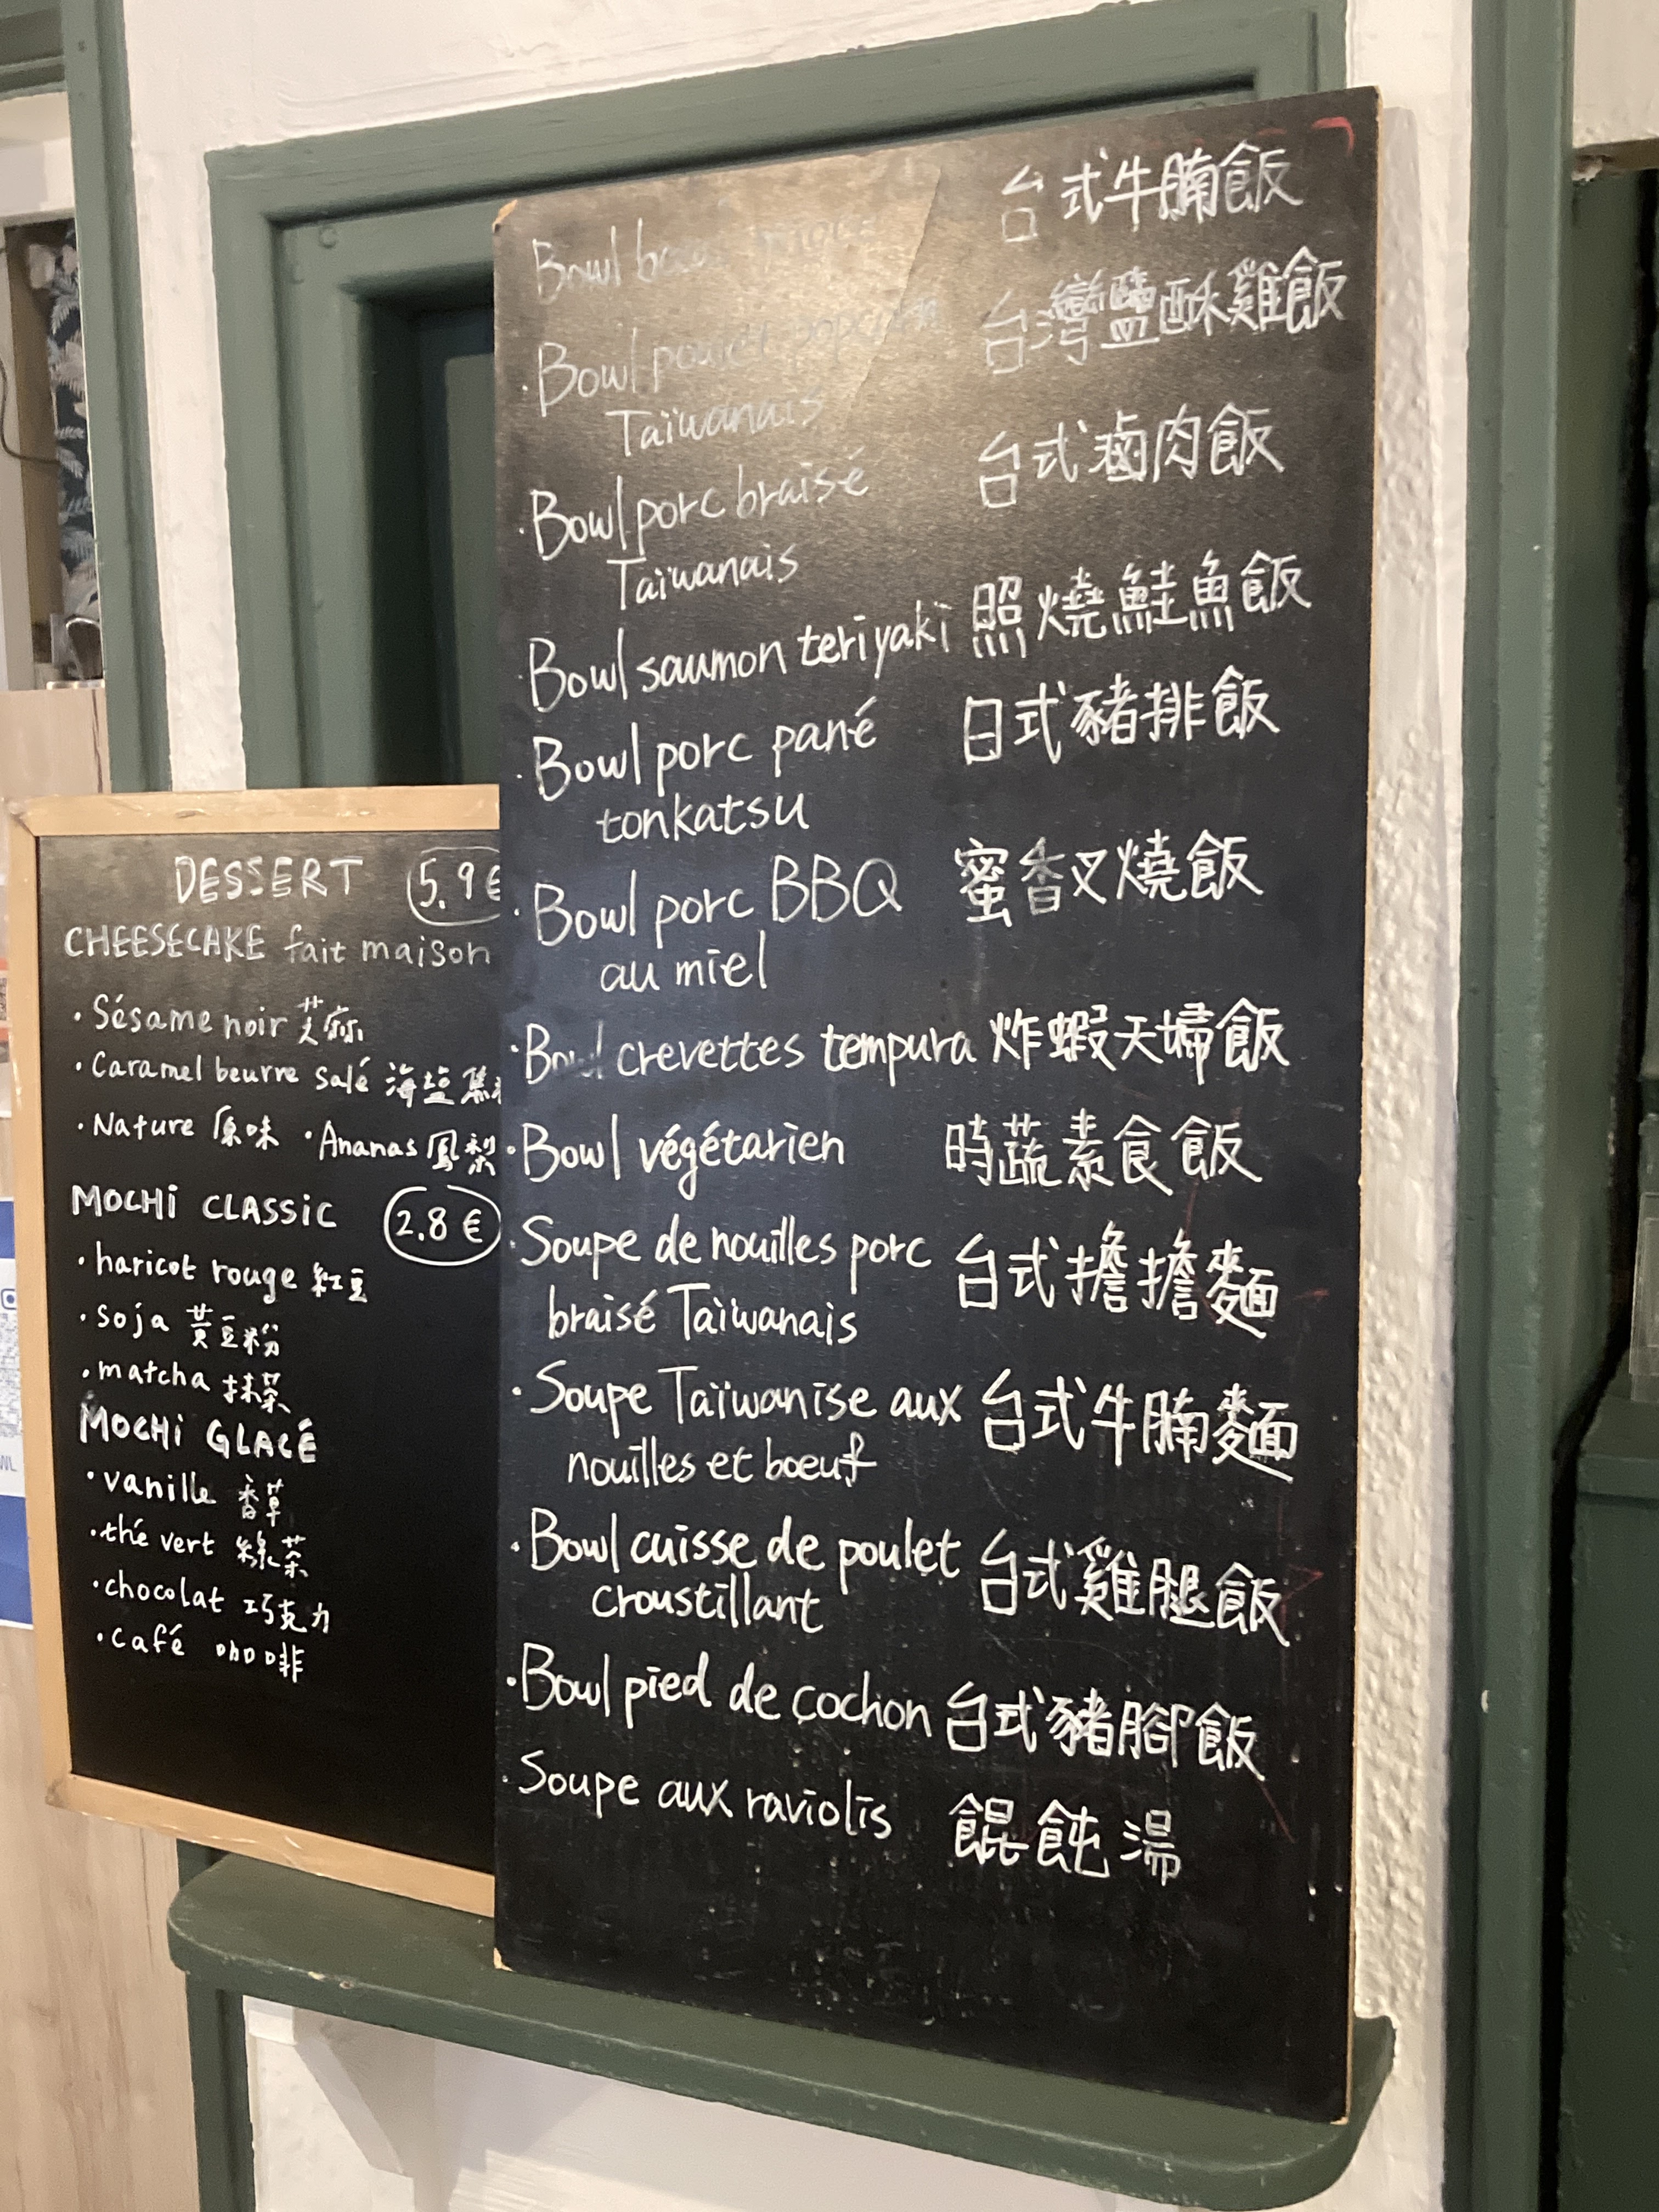 DESSERT 5.9€
CHEESECAKE fait maison
・Sésame noir 芝麻
・Caramel beurre salé 海盐焦
・Nature 原味 ・Ananas 鳳梨
MOCHI CLASSIC 2.8€
・haricot rouge 紅豆
・soja 黄豆粉
・matcha 抹茶
MOCHI GLACÉ
・vanille 香草
・thé vert 綠茶
・chocolat 巧克力
・café 咖啡
Bowl 台式牛腩飯
・Bowl poulet popcorn 台灣鹽酥雞飯
Taïwanais
・Bowl porc braisé 台式滷肉飯
Taïwanais
・Bowl saumon teriyaki 照燒鮭魚飯
・Bowl porc pané 日式豬排飯
tonkatsu
・Bowl porc BBQ 蜜香叉燒飯
au miel
・Bowl crevettes tempura 炸蝦天婦飯
・Bowl végétarien 時蔬素食飯
・Soupe de nouilles porc 台式擔擔麵
braisé Taïwanais
・Soupe Taïwanise aux 台式牛腩麵
nouilles et boeuf
・Bowl cuisse de poulet 台式雞腿飯
croustillant
・Bowl pied de cochon 台式豬腳飯
・Soupe aux raviolis 餛飩湯